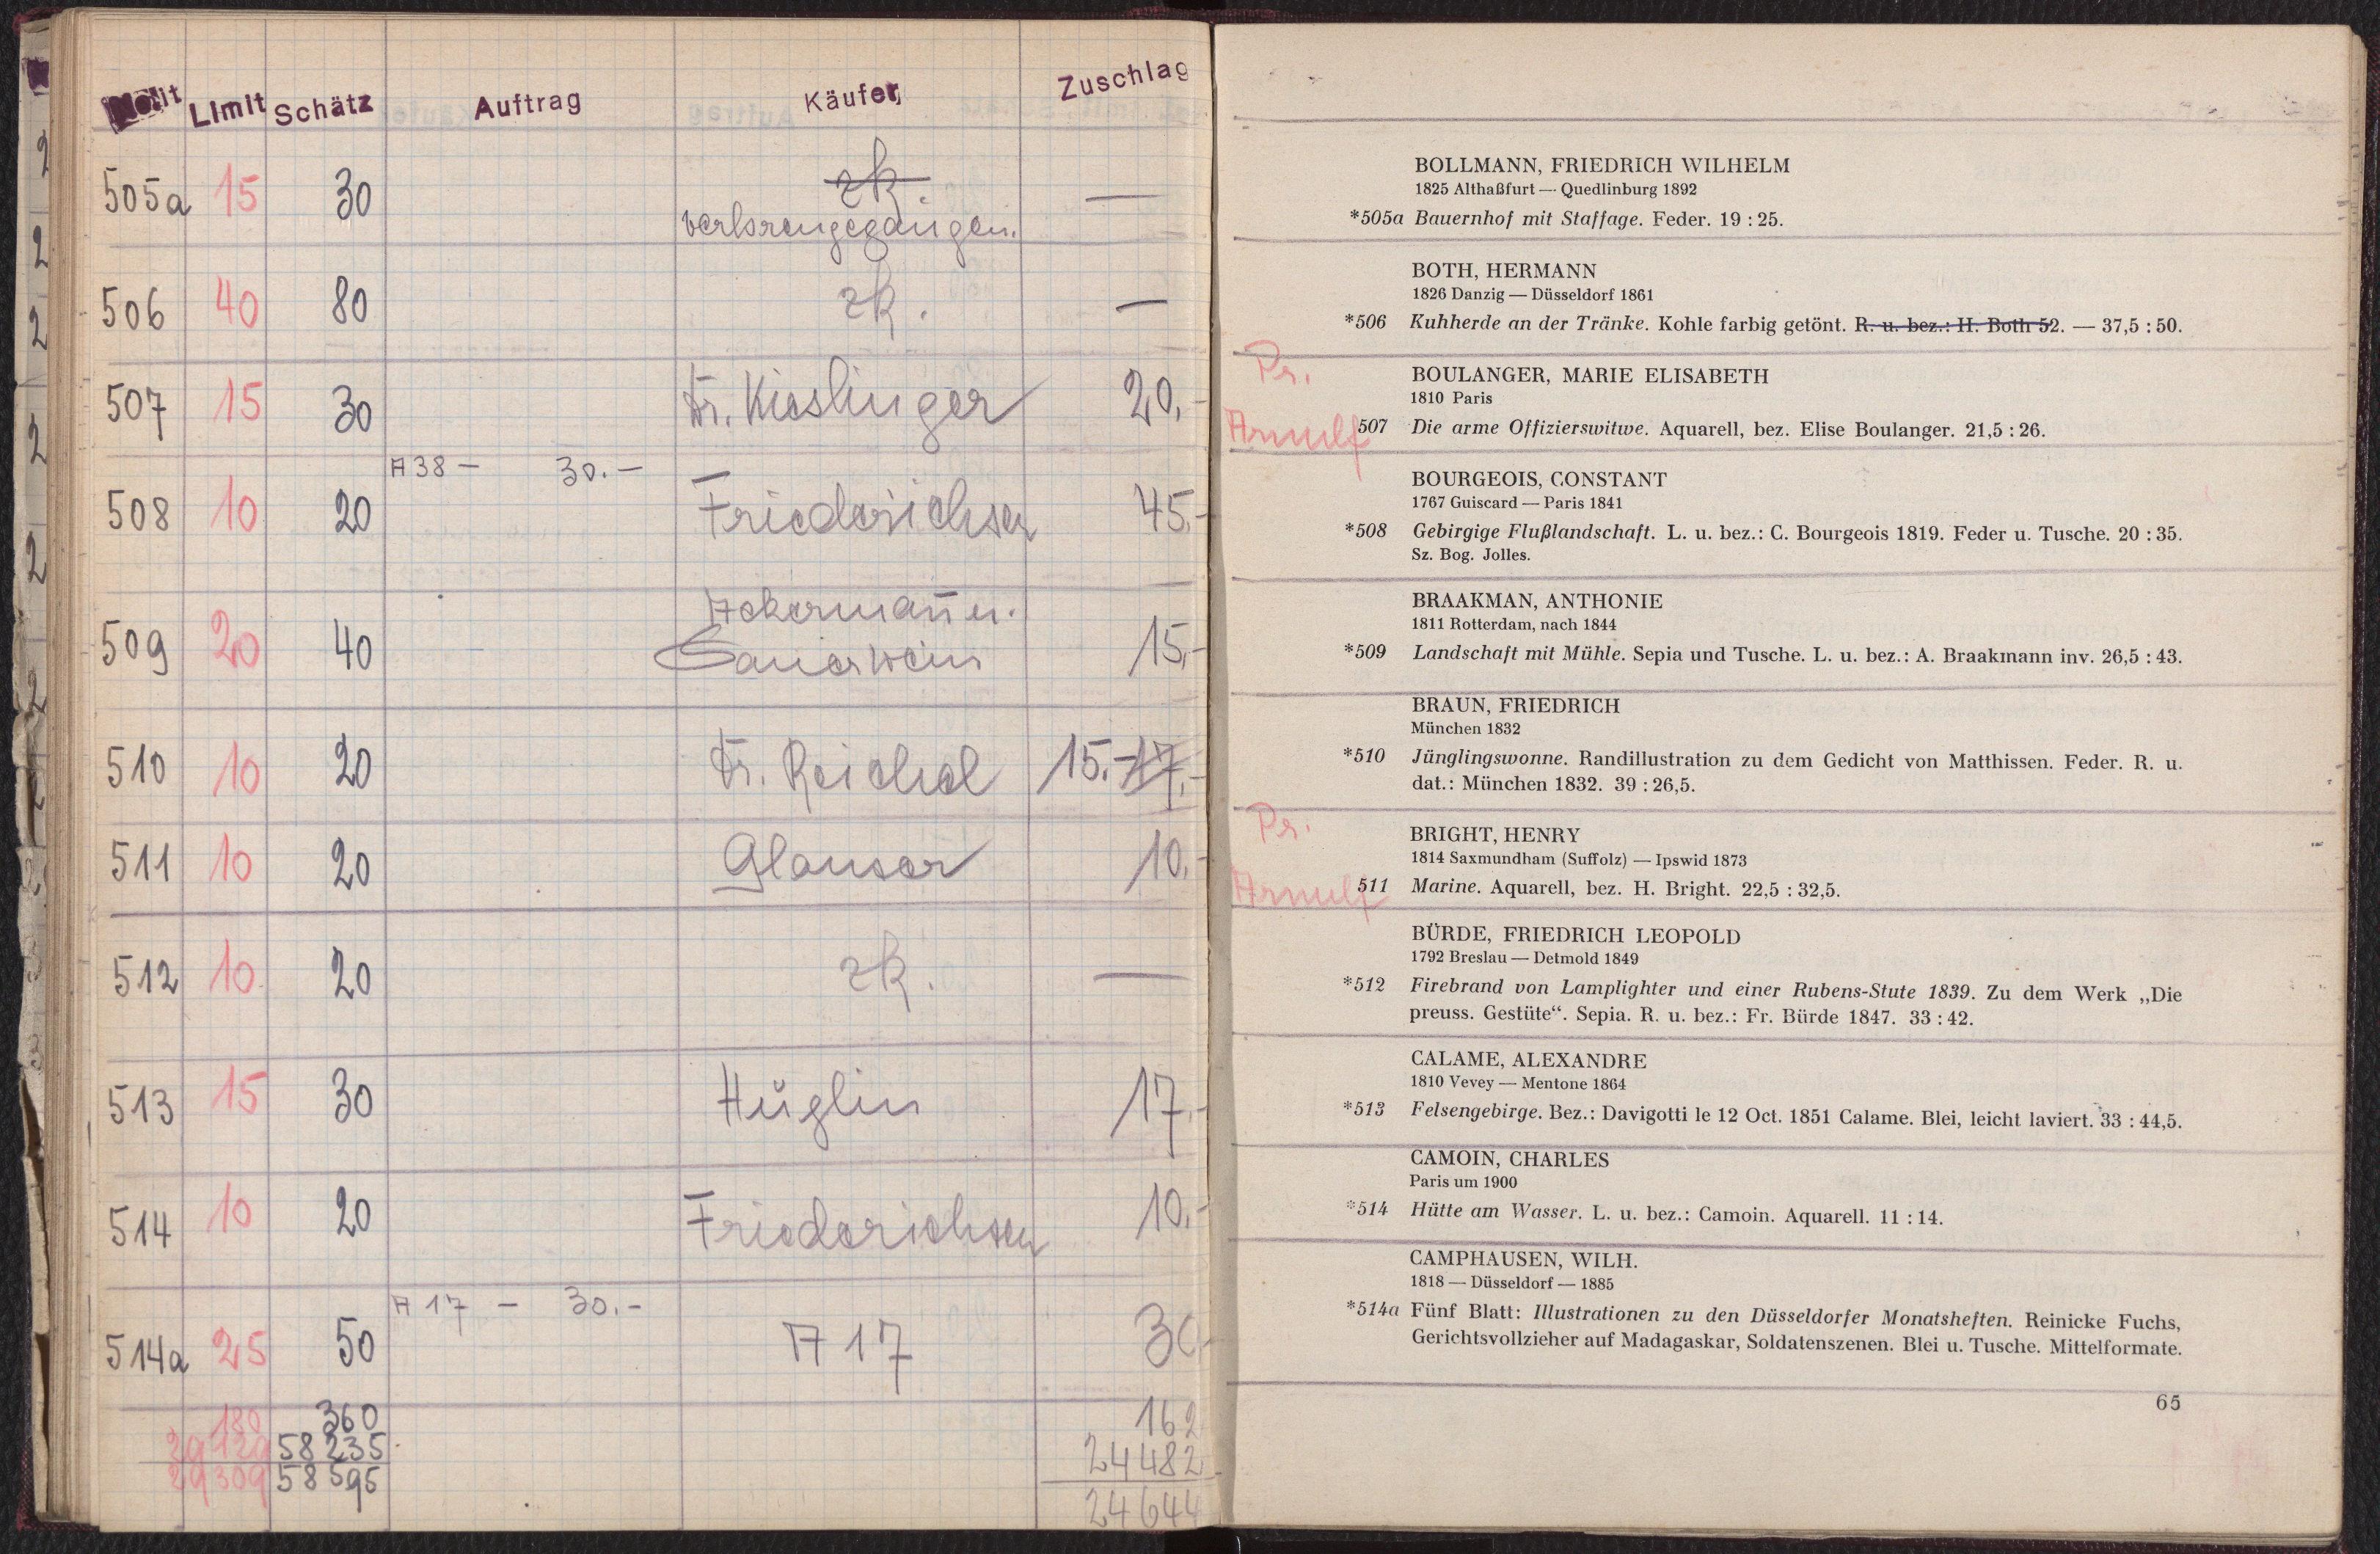 Limit Schätz Auftrag Käufer Zuschlag
505a 15 30 zk —
verlorengegangen.
506 40 80 zk. —
507 15 30 Dr. Kieslinger 20,-
A 38 — 30.—
508 10 20 Friederichsen 45,-
Ackermann u.
509 20 40 Sauerwein 15,-
510 10 20 Dr. Reichel 15.- 17,-
511 10 20 Glauser 10,-
512 10 20 zk. —
513 15 30 Hüglin 17,-
514 10 20 Friederichsen 10,-
A 17 — 30.-
514a 25 50 A 17 30
180 360 162
29129 58235 24482
29309 58595 24644
BOLLMANN, FRIEDRICH WILHELM
1825 Althaßfurt — Quedlinburg 1892
*505a Bauernhof mit Staffage. Feder. 19 : 25.
BOTH, HERMANN
1826 Danzig — Düsseldorf 1861
*506 Kuhherde an der Tränke. Kohle farbig getönt. R. u. bez.: H. Both 52. — 37,5 : 50.
Pr.
BOULANGER, MARIE ELISABETH
1810 Paris
Arnulf 507 Die arme Offizierswitwe. Aquarell, bez. Elise Boulanger. 21,5 : 26.
BOURGEOIS, CONSTANT
1767 Guiscard — Paris 1841
*508 Gebirgige Flußlandschaft. L. u. bez.: C. Bourgeois 1819. Feder u. Tusche. 20 : 35.
Sz. Bog. Jolles.
BRAAKMAN, ANTHONIE
1811 Rotterdam, nach 1844
*509 Landschaft mit Mühle. Sepia und Tusche. L. u. bez.: A. Braakmann inv. 26,5 : 43.
BRAUN, FRIEDRICH
München 1832
*510 Jünglingswonne. Randillustration zu dem Gedicht von Matthissen. Feder. R. u.
dat.: München 1832. 39 : 26,5.
Pr.
BRIGHT, HENRY
1814 Saxmundham (Suffolz) — Ipswid 1873
Arnulf 511 Marine. Aquarell, bez. H. Bright. 22,5 : 32,5.
BÜRDE, FRIEDRICH LEOPOLD
1792 Breslau — Detmold 1849
*512 Firebrand von Lamplighter und einer Rubens-Stute 1839. Zu dem Werk „Die
preuss. Gestüte“. Sepia. R. u. bez.: Fr. Bürde 1847. 33 : 42.
CALAME, ALEXANDRE
1810 Vevey — Mentone 1864
*513 Felsengebirge. Bez.: Davigotti le 12 Oct. 1851 Calame. Blei, leicht laviert. 33 : 44,5.
CAMOIN, CHARLES
Paris um 1900
*514 Hütte am Wasser. L. u. bez.: Camoin. Aquarell. 11 : 14.
CAMPHAUSEN, WILH.
1818 — Düsseldorf — 1885
*514a Fünf Blatt: Illustrationen zu den Düsseldorfer Monatsheften. Reinicke Fuchs,
Gerichtsvollzieher auf Madagaskar, Soldatenszenen. Blei u. Tusche. Mittelformate.
65